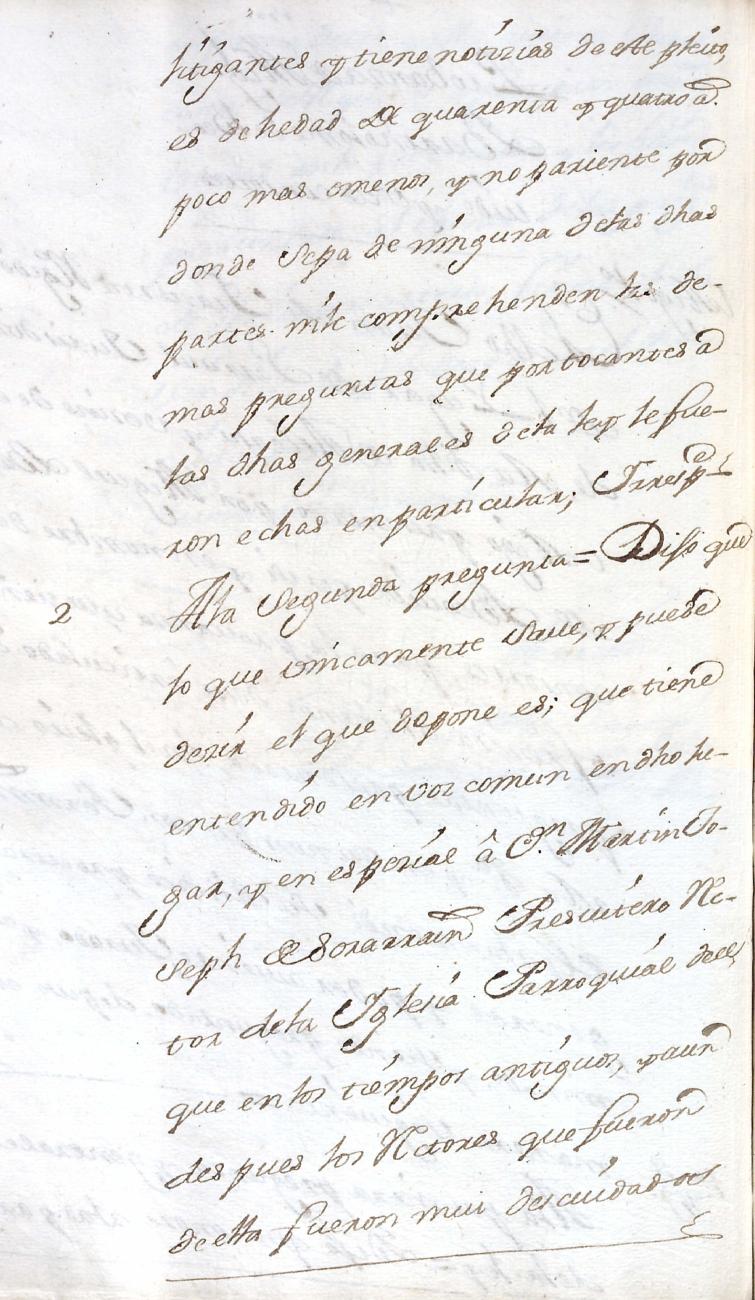 litigantes y tiene notizias de este pleito,
es de hedad de quarenta y quatro a.
poco mas omenos, y no pariente por
donde Sepa de ninguna destas dhas
partes. nile comprehenden las de-
mas preguntas que por tocantes a
las dhas generales dela ley le fue-
ron echas en particular; Yresp.e
2 Ala Segunda pregunta = Dijo que
lo que unicamente save, y puede
dezir el que depone es; que tiene
entendido en voz comun en dho lu-
gar, y en espezial â D.n Martin Jo-
seph de Sorarrain Presvitero Rec-
tor dela Iglesia Parroquial del,
que en los tiempos antiguos, y aun
des pues los Rectores que fueron
de ella fueron mui descuidados